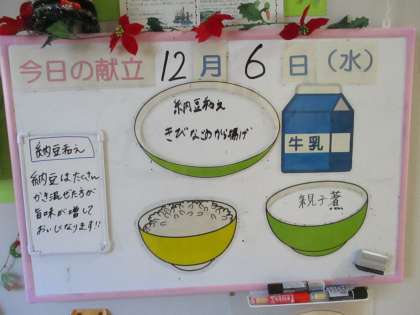 今日の献立 12月6日(水)
納豆和え
きびなごから揚げ
牛乳
納豆和え
納豆はたくさん
かき混ぜた方が
旨味が増して
おいしくなります!!
親子煮